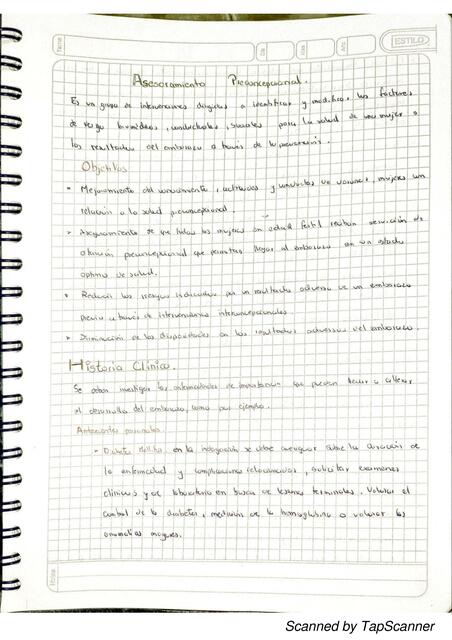 ESTILO
Asesoramiento Preconcepcional.
Es un grupo de intervenciones dirigidas a identificar y modificar los factores
de riesgo biomédicos, conductuales, sociales para la salud de una mujer o
los resultados del embarazo a través de la prevención.
Objetivos
• Mejoramiento del conocimiento, actitudes y conductas de varones, mujeres en
relación a la salud preconcepcional.
• Aseguramiento de que todas las mujeres en edad fertil reciban servicios de
atención preconcepcional que permitan llegar al embarazo en un estado
optimo de salud.
• Reducir los riesgos indicados por un resultado adverso de un embarazo
previo a través de intervenciones interconcepcionales
• Disminución de las disparidades en los resultados adversos del embarazo.
Historia Clínica.
Se deben investigar las enfermedades de importancia que puedan llevar a alterar
el desarrollo del embarazo, como por ejemplo.
Antecedentes personales
• Diabetes Mellitus: en la indagación se debe averiguar sobre la duración de
la enfermedad y complicaciones relacionadas, solicitar examenes
clínicos y de laboratorio en busca de lesiones terminales. Valorar el
control de la diabetes, medición de la hemoglobina a valorar las
anomalías mayores.
Scanned by TapScanner